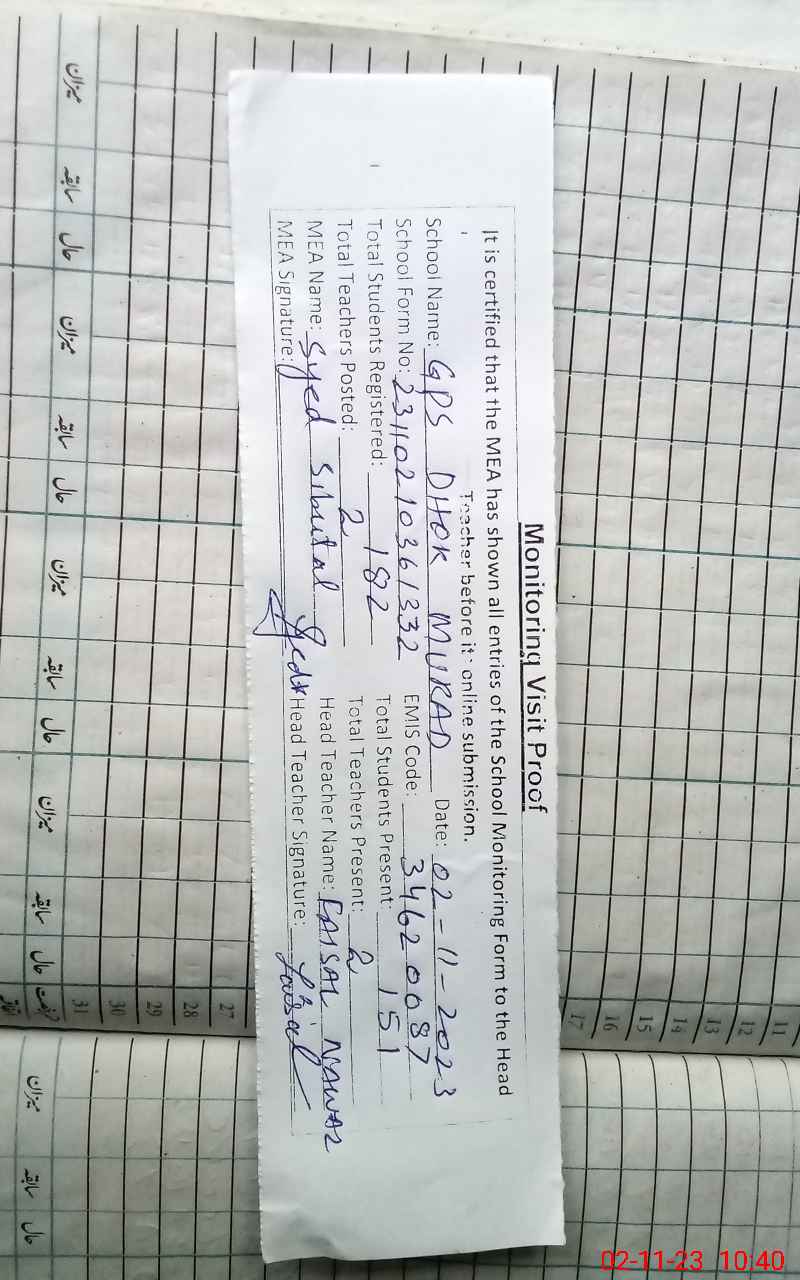 Monitoring Visit Proof
It is certified that the MEA has shown all entries of the School Monitoring Form to the Head
Teacher before it online submission.
School Name: GPS DHOK MURAD Date: 02-11-2023
School Form No: 23110210361332 EMIS Code: 34620087
Total Students Registered: 182 Total Students Present: 151
Total Teachers Posted: 2 Total Teachers Present: 2
MEA Name: Syed Sibutal Head Teacher Name: FAISAL NAWAZ
MEA Signature: Head Teacher Signature: Faisal
11
12
13
14
15
16
17
27
28
29
30
31
میزان سابقہ حال میزان سابقہ حال میزان سابقہ حال میزان سابقہ حال
میزان سابقہ حال
02-11-23 10:40